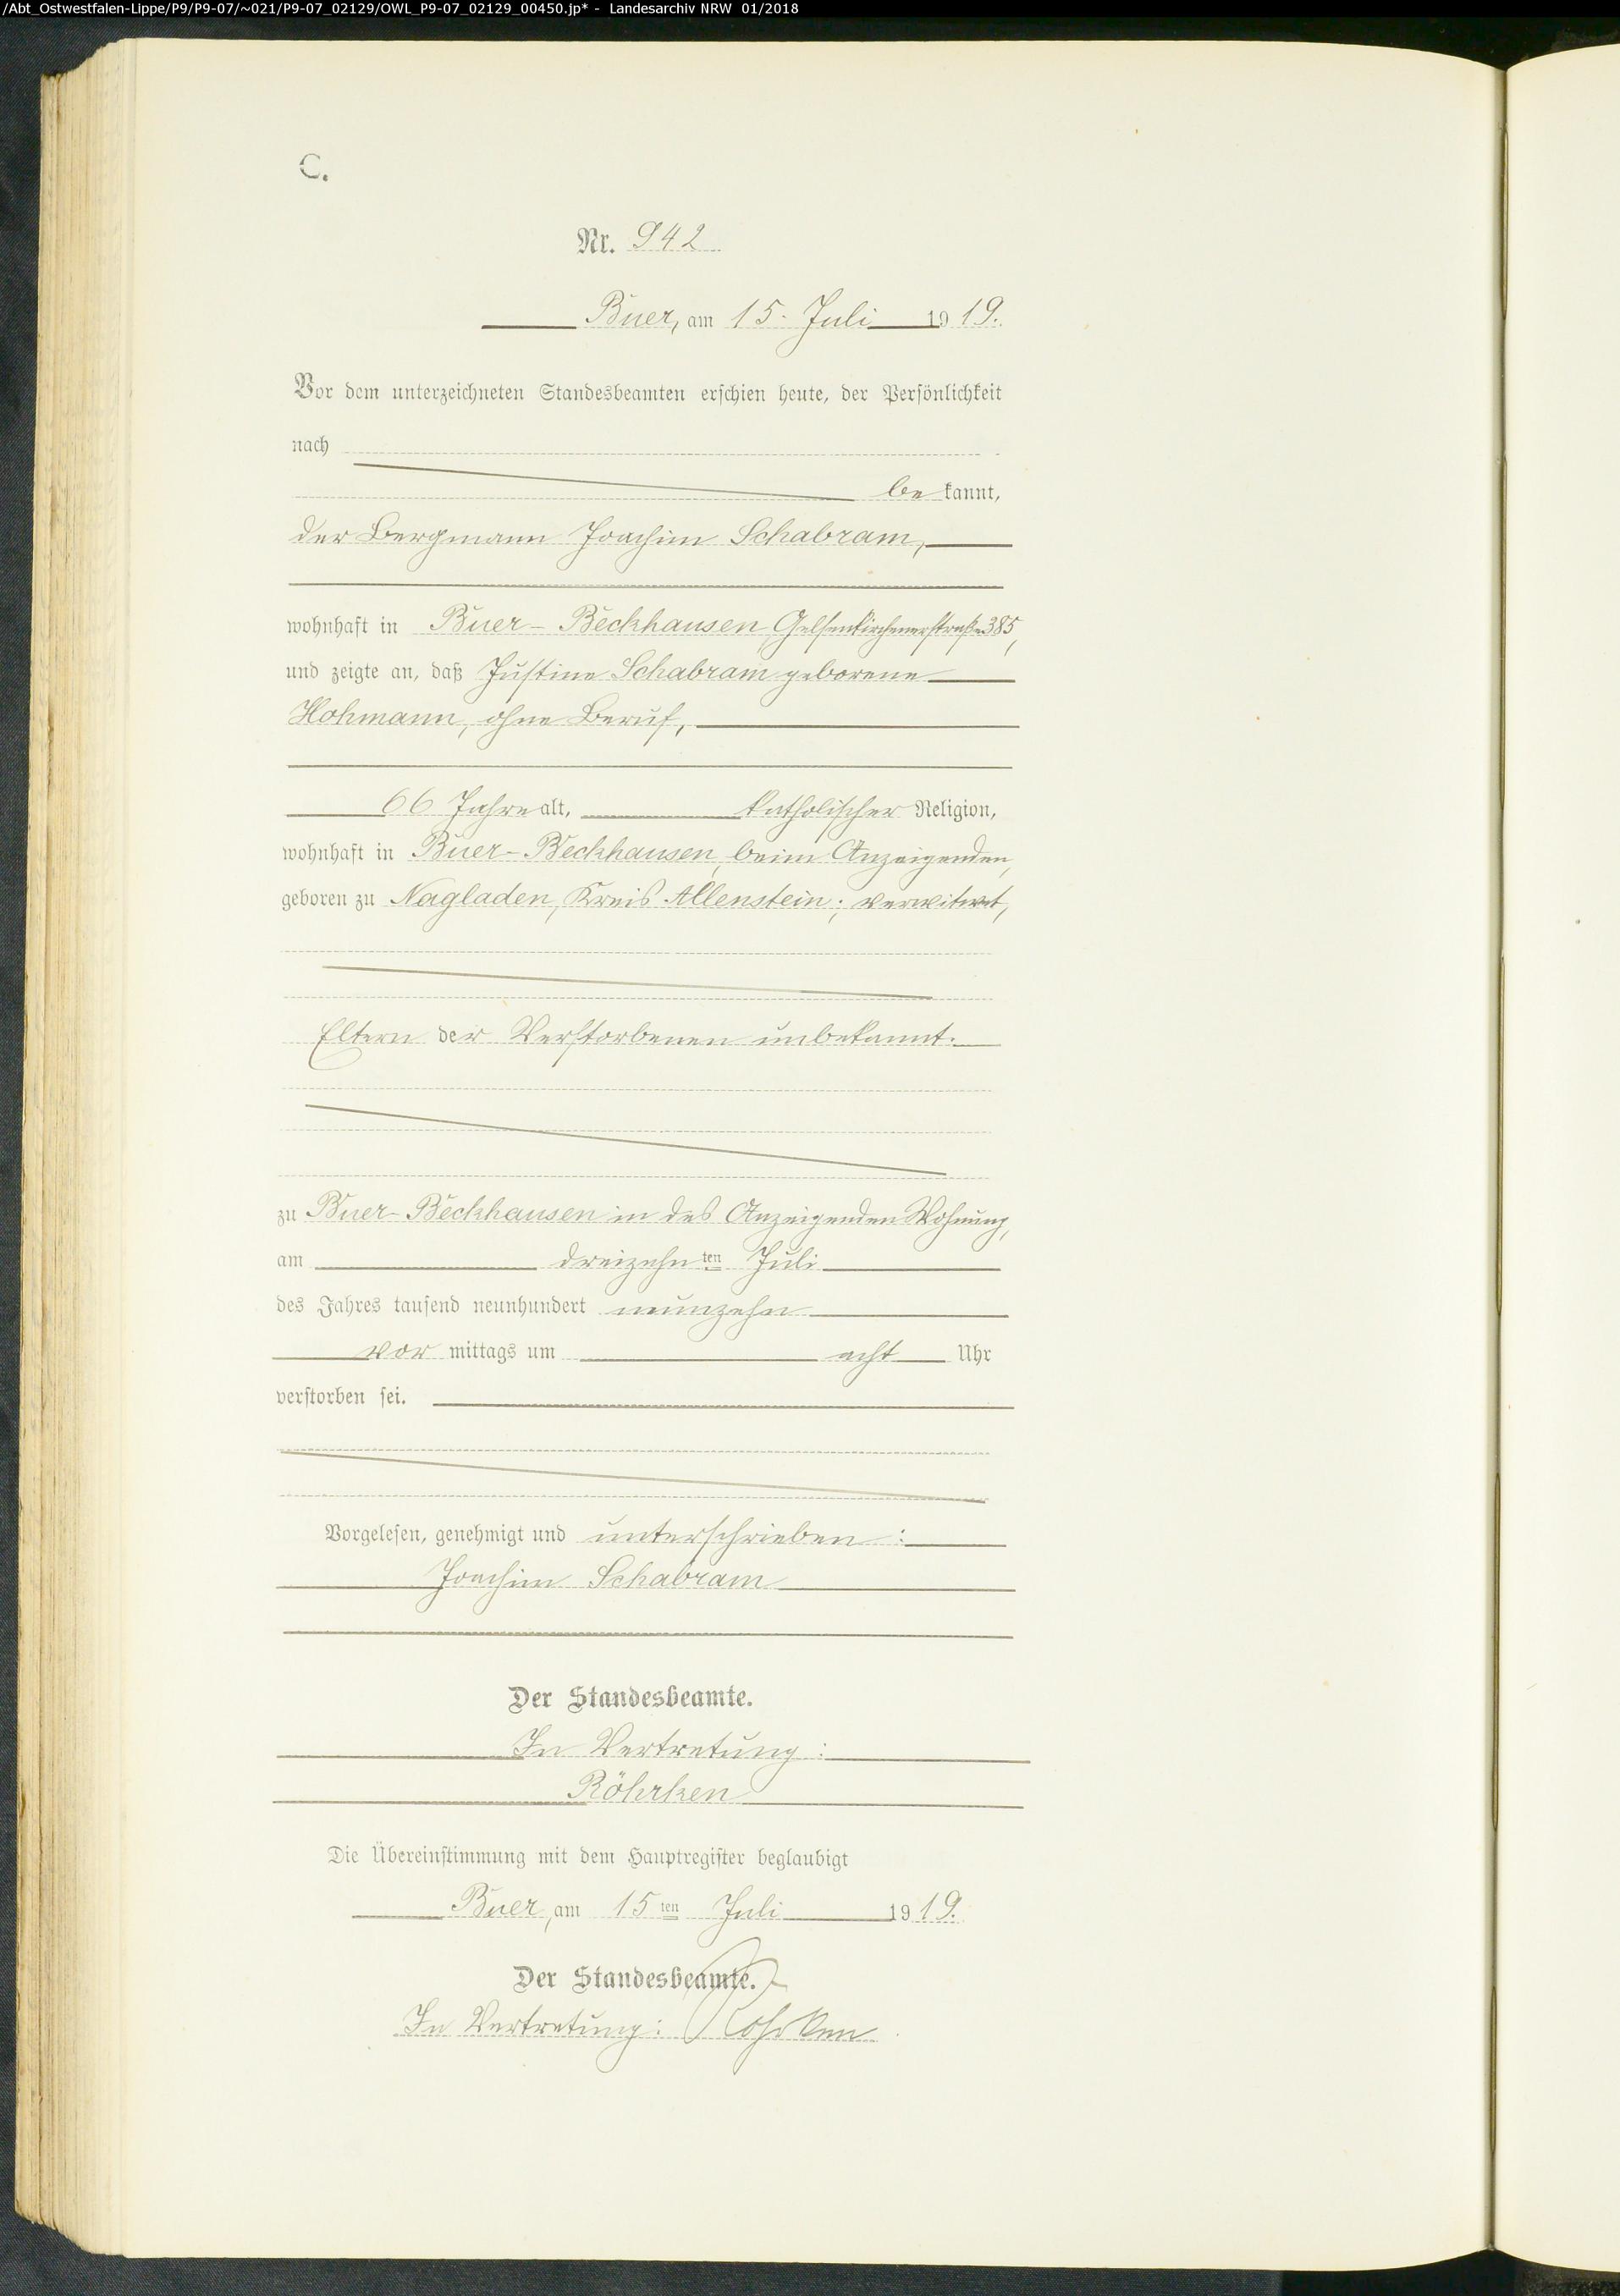 /Abt_Ostwestfalen-Lippe/P9/P9-07/~021/P9-07_02129/OWL_P9-07_02129_00450.jp* - Landesarchiv NRW 01/2018
C.
Nr. 942
Buer, am 15. Juli 1919.
Vor dem unterzeichneten Standesbeamten erschien heute, der Persönlichkeit
nach
bekannt,
der Bergmann Joachim Schabram,
wohnhaft in Buer-Beckhausen, Gelsenkirchenerstraße 385,
und zeigte an, daß Justine Schabram geborene
Hohmann, ohne Beruf,
66 Jahre alt, katholischer Religion,
wohnhaft in Buer-Beckhausen, beim Anzeigenden,
geboren zu Nagladen, Kreis Allenstein; verwitwet,
Eltern der Verstorbenen unbekannt.
zu Buer-Beckhausen in des Anzeigenden Wohnung,
am dreizehnten Juli
des Jahres tausend neunhundert neunzehn
vormittags um acht Uhr
verstorben sei.
Vorgelesen, genehmigt und unterschrieben:
Joachim Schabram
Der Standesbeamte.
In Vertretung:
Röhrken
Die Übereinstimmung mit dem Hauptregister beglaubigt
Buer, am 15ten Juli 1919.
Der Standesbeamte.
In Vertretung: Röhrken